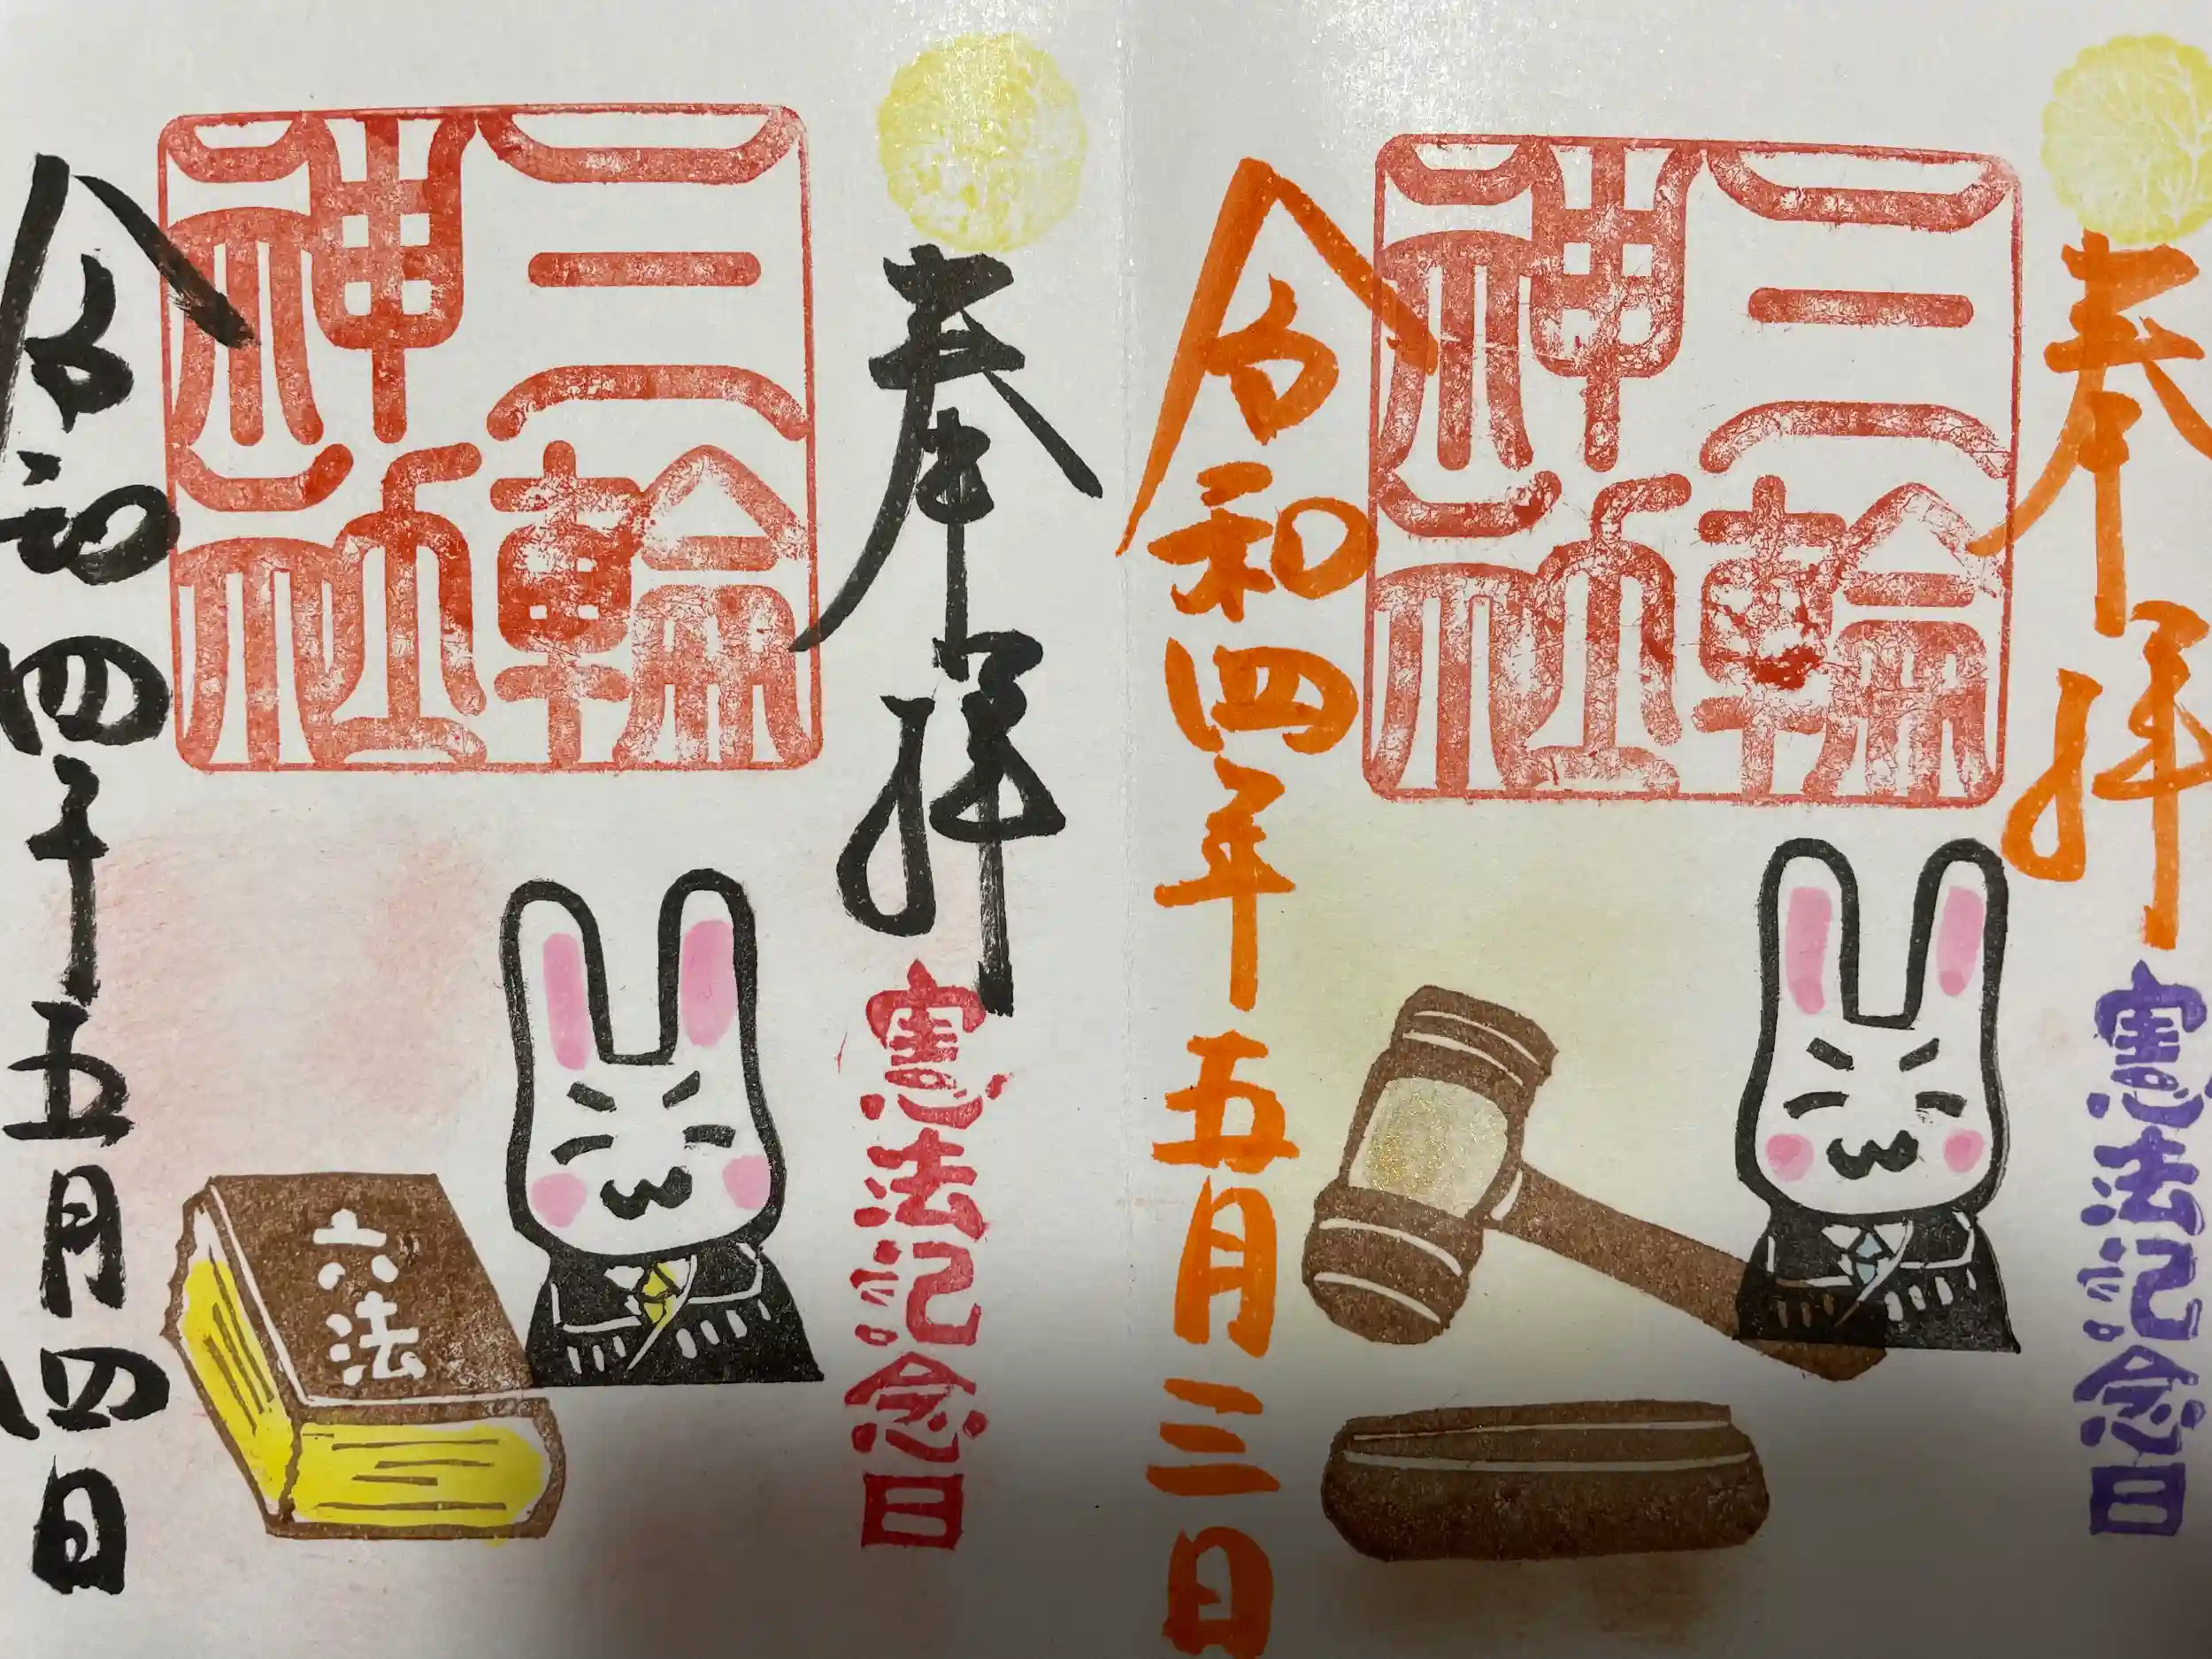 奉拝
憲法記念日
三輪
神社
令和四年五月三日
奉拝
憲法記念日
三輪
神社
六法
令和四年五月四日